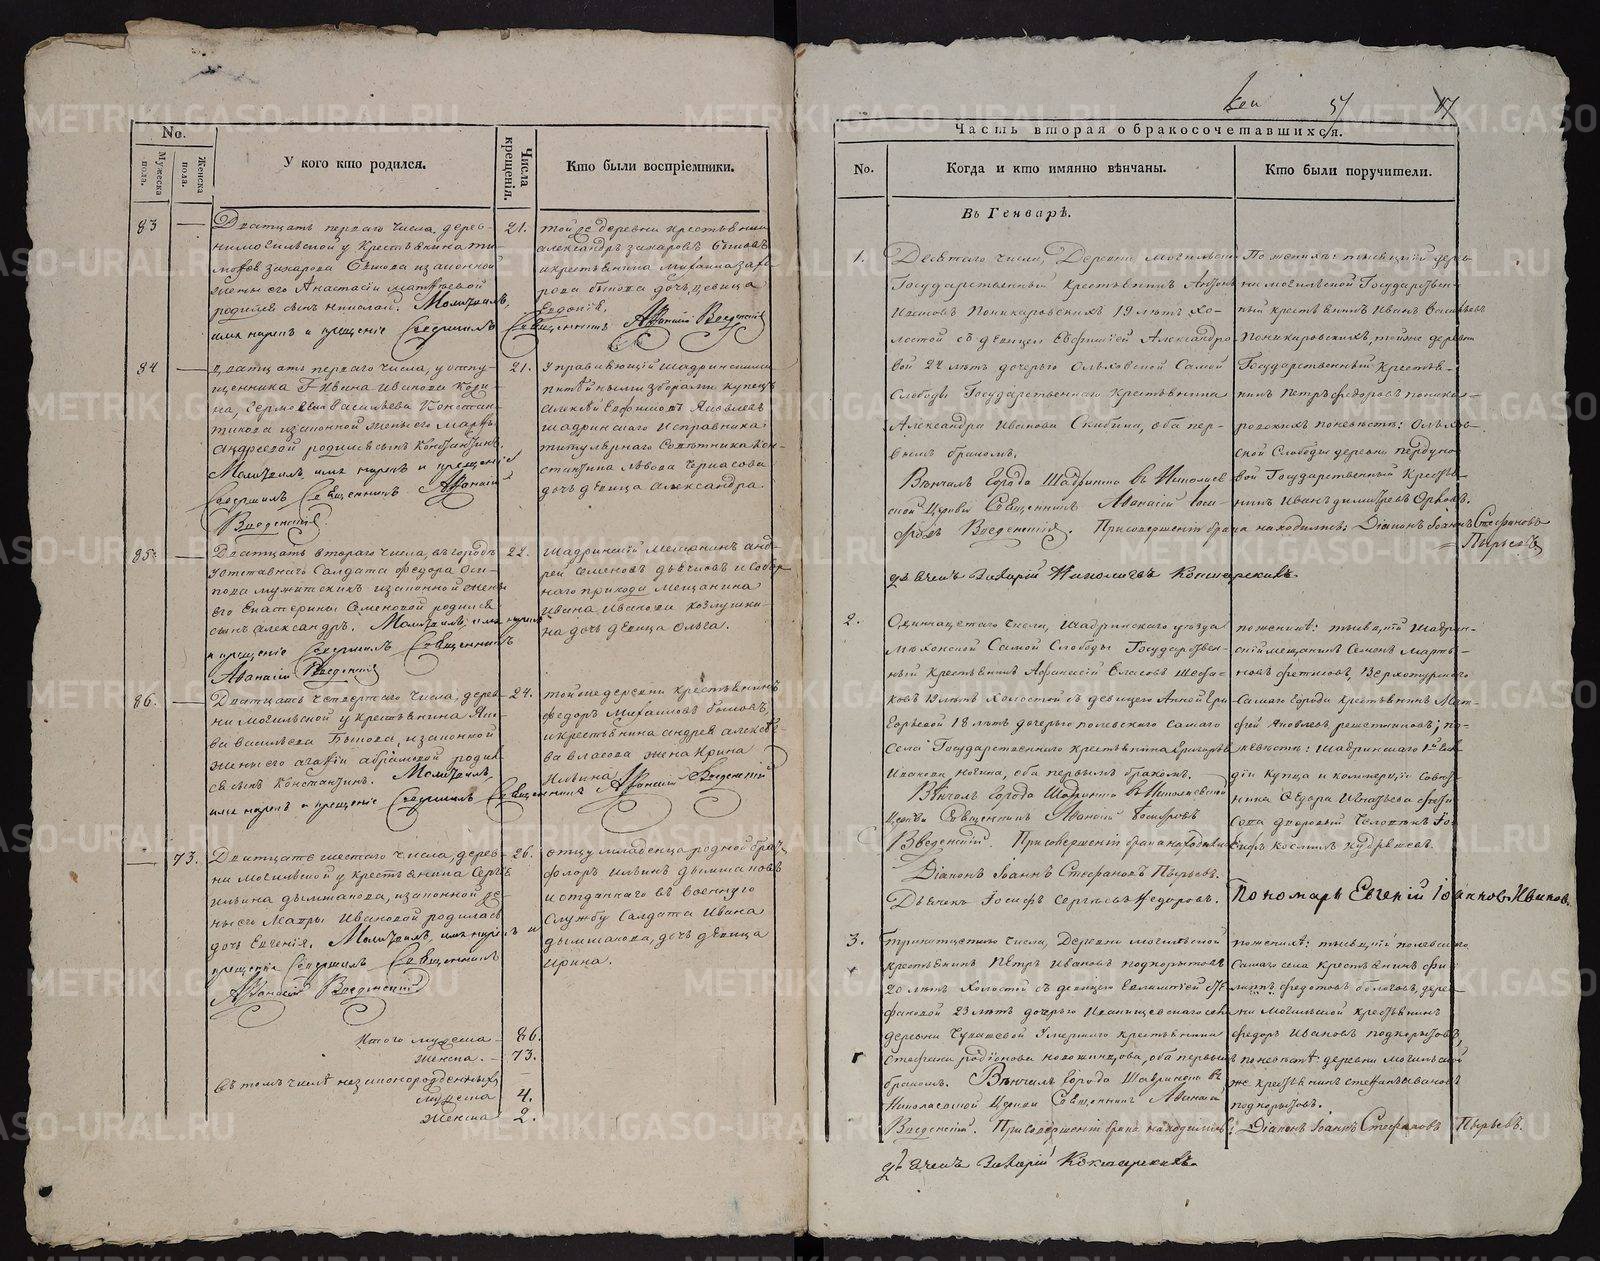 No.
Мужеска пола.
Женска пола.
У кого кто родился.
Числа крещенія.
Кто были воспріемники.
83
Дватцать перваго числа, дерев-
ни Могильской у крестьянина Ти-
мофея Захарова Бытова и законной
жены его Анастасіи Матвеевой
родился сынъ Николай. Молитвилъ,
имя нарекъ и крещеніе совершилъ Священникъ Афанасій Введенскій
21.
той же деревни крестьянинъ
Александръ Захаровъ Бытовъ
и крестьянина Михаила Заха-
рова Бытова дочь девица
Евдокія.
84
Дватцать перваго числа, у отпу-
щенника
Андреевой родился сынъ Константинъ.
Молитвилъ имя нарекъ и крещеніе
совершилъ Священникъ Афанасій
Введенскій
21.
Управляющій Шадринскими
питейными зборами купецъ
Алексей Евфимовъ Яковлевъ
Шадринскаго Исправника
титулярнаго Советника Кон-
стантина Львова Черкасова
дочь девица Александра
85.
Дватцать втораго числа, въ городе
у отставнаго Салдата Федора Оси-
пова и законной жены
его Екатерины Семеновой родился
сынъ Александръ. Молитвилъ, имя нарекъ
и крещеніе совершилъ Священникъ
Афанасій Введенскій
22.
Шадринскій мещанинъ Анд-
рей Семеновъ и Собор-
наго прихода мещанина
Ивана Иванова
на дочь девица Ольга.
86.
Дватцать четвертаго числа, дерев-
ни Могильской у крестьянина Яко-
ва Васильева Бытова, и законной
жены его Агафіи Абрамовой родил-
ся сынъ Константинъ. Молитвилъ,
имя нарекъ и крещеніе совершилъ Священникъ Афанасій Введенскій
24.
той же деревни крестьянинъ
Федоръ Михайловъ Бытовъ,
и крестьянина Андрея Алексее-
ва Власова жена Ирина
Ильина
73.
Дватцать шестаго числа, дерев-
ни Могильской у крестьянина Сергея
Ильина Дымшакова, и законной же-
ны его Мавры Ивановой родилась
дочь Евгенія. Молитвилъ, имя нарекъ и
крещеніе совершилъ Священникъ
Афанасій Введенскій
26.
отцу младенца родной братъ
Флоръ Ильинъ Дымшаковъ
и отданнаго въ военную
службу Салдата Ивана
Дымшакова, дочь девица
Ирина.
Итого мужеска — 86.
женска. — 73.
Въ томъ числе незаконнорожденныхъ
мужеска 4.
женска 2.
57
Часть вторая о бракосочетавшихся.
No.
Когда и кто имянно вѣнчаны.
Кто были поручители.
Въ Генварѣ.
1.
Десятаго числа, Деревни Могильской
Государственный крестьянинъ Антонъ
Ивановъ Поникаровскихъ 19 летъ хо-
лостой съ девицей Евфиміей Александро-
вой 24 летъ дочерью Ольховской Самой
Слободы Государственнаго Крестьянина
Александра Иванова Скибина, оба пер-
вымъ бракомъ.
Венчалъ города Шадринска въ Николаев-
ской Церкви Священникъ Афанасій
Введенскій. При совершеніи брака находились: Діаконъ Іоаннъ Стефановъ
Пырьевъ
дьячекъ Захарій Николаевъ Кокшарскихъ.
По женихе: тысяцкій дерев-
ни Могильской Государствен-
ный крестьянинъ Иванъ Васильевъ
Поникаровскихъ, той же деревни
Государственный Крестья-
нинъ Петръ Федоровъ Поника-
ровскихъ по невесте: Ольхов-
ской Слободы деревни
вой Государственный Кресть-
нинъ Иванъ Димитріевъ Орловъ.
2.
Одиннацатаго числа, Шадринскаго уезда
Мехонской Самой Слободы Государствен-
ный Крестьянинъ Афанасій Власовъ
19 летъ холостой съ девицею Анной Гри-
горьевой 18 летъ дочерью Полевскаго самаго
Села Государственнаго крестьянина Григорья
Иванова оба первымъ бракомъ.
Венчалъ города Шадринска въ Николаевской
Церкви Священникъ Афанасій
Введенскій. При совершеніи брака находились
Діаконъ Іоаннъ Стефановъ Пырьевъ.
Дьячекъ Іосифъ Сергеевъ Федоровъ. Пономарь Евгеній Іоанновъ Ивановъ.
по женихе: тысяцкій Шадрин-
скій мещанинъ Семенъ Марты-
новъ Фетисовъ, Верхотурскаго
Самаго города крестьянинъ Мат-
фей Яковлевъ Решетниковъ; по
невесте: Шадринскаго 1й гиль-
діи купца и коммерціи Совет-
ника Федора Игнатьева Фети-
сова дворовый человекъ
Козминъ Кудряшевъ.
3.
тринатцатаго числа, Деревни Могильской
крестьянинъ Петръ Ивановъ Подкорытовъ
20 летъ холостой съ девицею Евлампіей Сте-
фановой 23 летъ дочерью Иванищевскаго села
деревни умершаго крестьянина
Стефана Родіонова Новожилова, оба первымъ
бракомъ. Венчалъ города Шадринска въ
Николаевской Церкви Священникъ Афанасій
Введенскій. При совершеніи брака находились: Діаконъ Іоаннъ Стефановъ Пырьевъ.
дьячекъ Захарій Кокшарскихъ.
по женихе: тысяцкій Полевскаго
Самаго села крестьянинъ Фи-
липпъ Федотовъ дерев-
ни Могильской крестьянинъ
Федоръ Ивановъ Подкорытовъ,
по невесте: деревни Могильской
же крестьянинъ Степанъ Ивановъ
Подкорытовъ.
METRIKI.GASO-URAL.RU